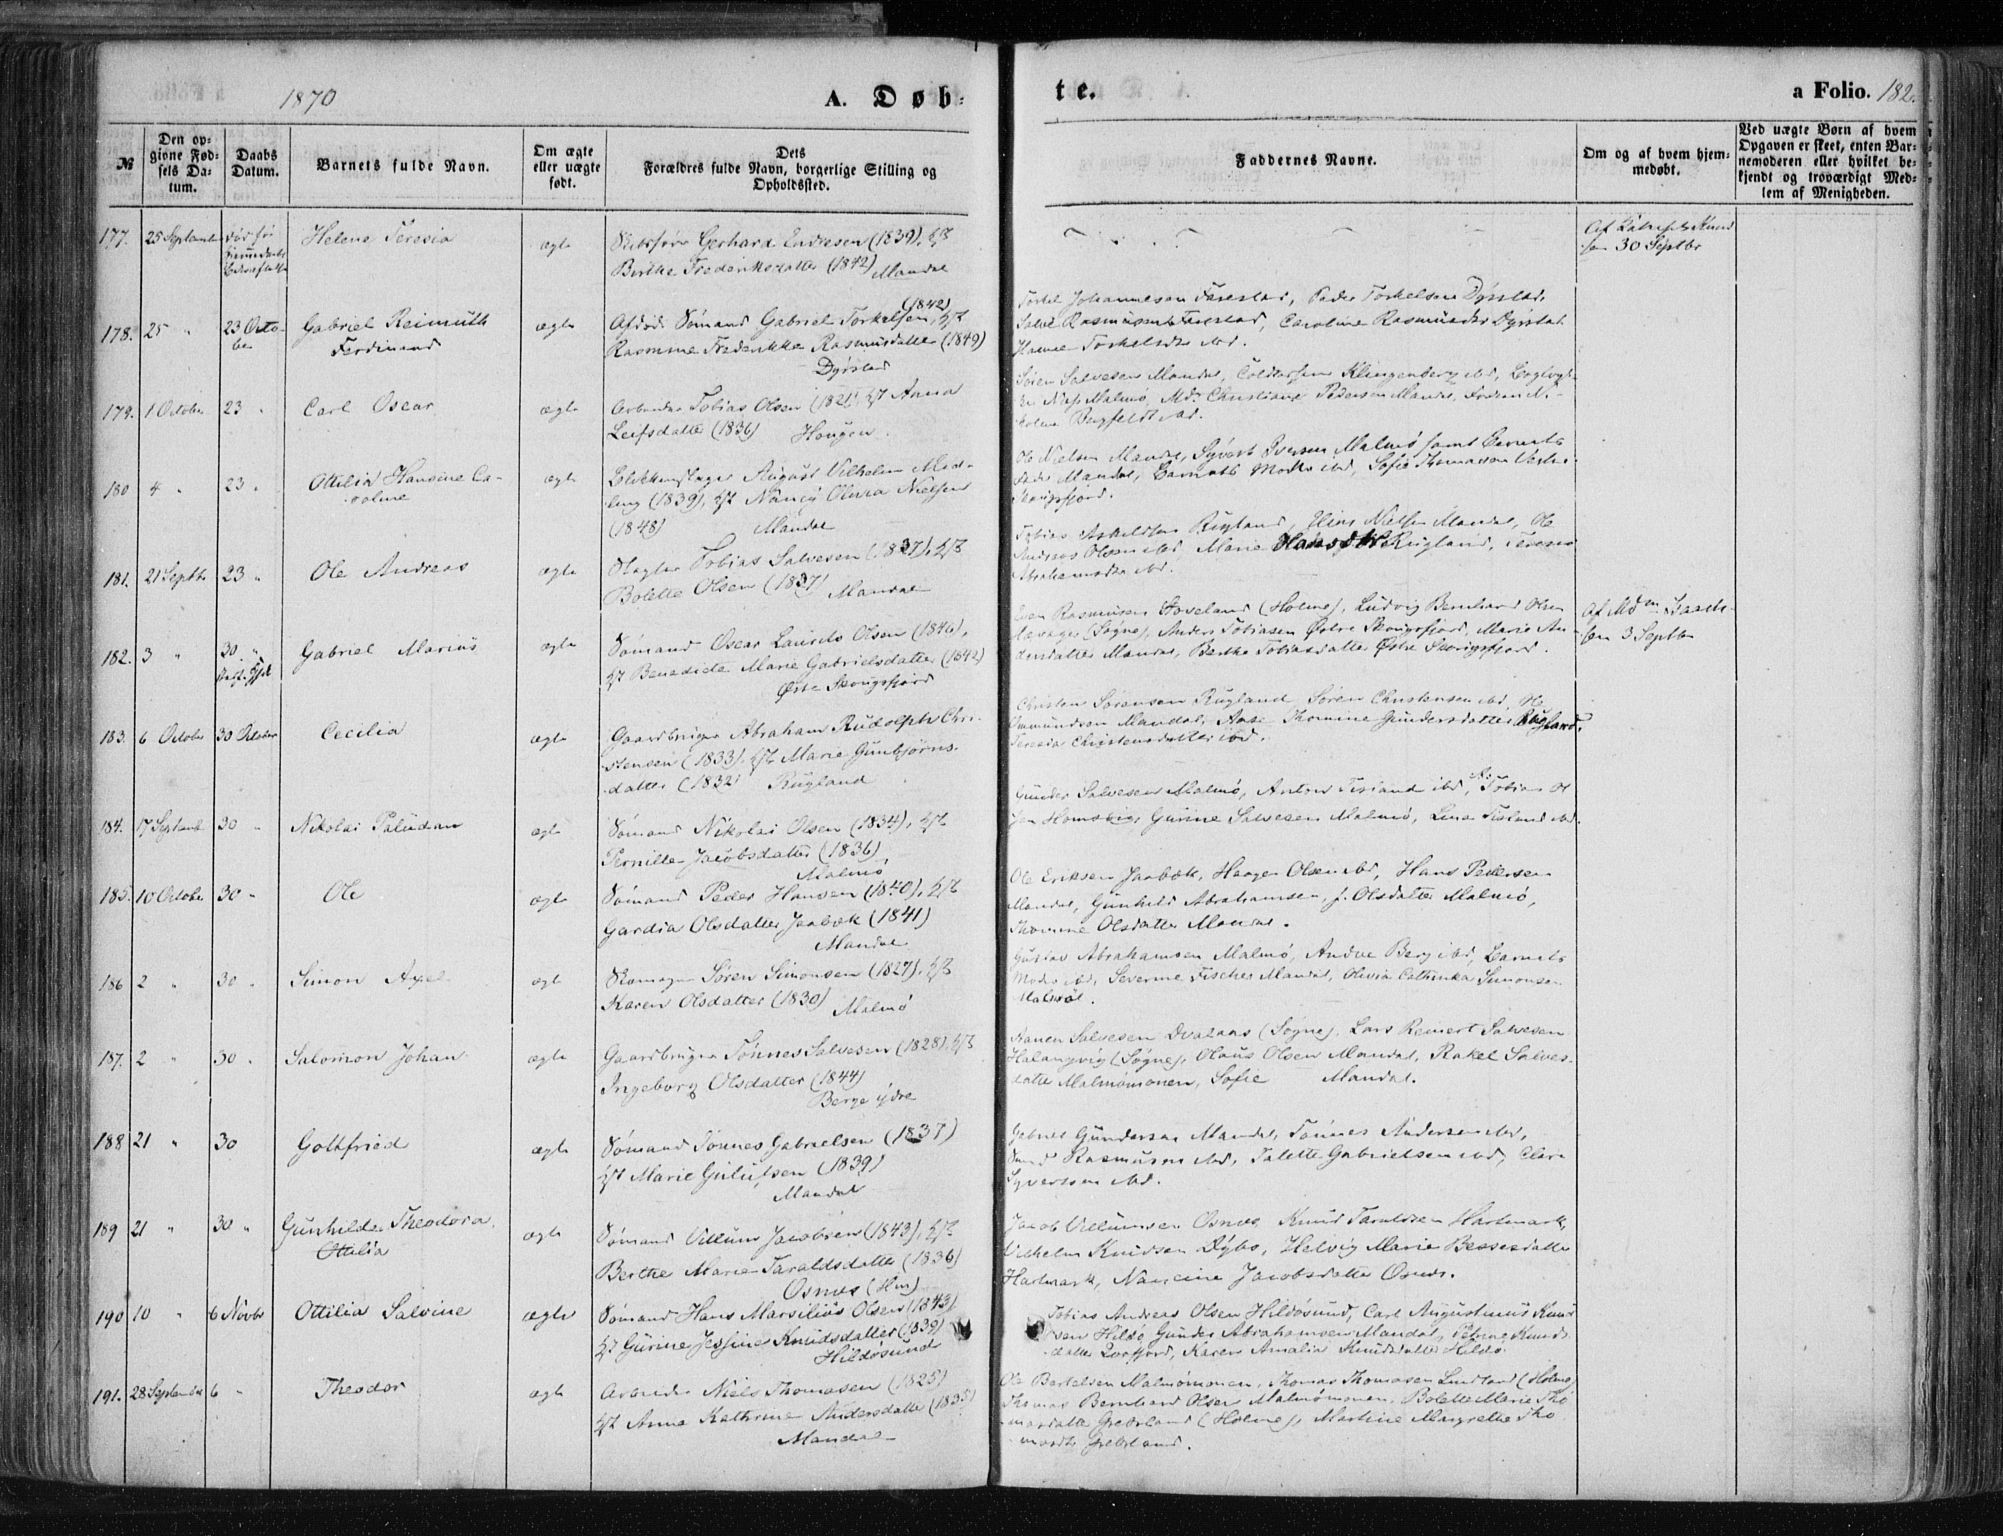 1870
A. Døb-
te.
a Folio. 182.
№
Den op-
givne Fød-
sels Da-
tum.
Daabs
Datum.
Barnets fulde Navn.
Om ægte
eller uægte
født.
Dets
Forældres fulde Navn, borgerlige Stilling og
Opholdssted.
Faddernes Navne.
Om og af hvem hjem-
medøbt.
Ved uægte Børn af hvem
Opgaven er skeet, enten Bar-
nemoderen eller hvilket be-
kjendt og troværdigt Med-
lem af Menigheden.
177. 25 Septemb død før
Helene Teresia
ægte
Skibsfører Gerhard Endresen (1839), Hst
Birthe Frederiksdatter (1842)
Mandal
30 Septbr
178. 25 " 23 Octo-
ber
Gabriel Reimuth
Ferdinand
ægte
(1842)
Afdøde Sømand Gabriel Torkelsen, Hst
Rasmine Frederikke Rasmusdatter (1849)
Dyrstad
Torkel Johannesen Farestad, Peder Torkelsen Dyrstad,
Salve Rasmussen Farestad, Caroline Rasmusdtr Dyrstad
Hanne Torkelsdtr ibd.
179. 1 Octobr 23 "
Carl Oscar
ægte
Arbeider Tobias Olsen (1821) Hst Anna
Leifsdatter (1836) Hougen
Søren Salvesen Mandal, Klingenberg ibd,
Niels Malmø, Md. Christiane Pedersen Mandal,
Bergfeldt ibd.
180 4 " 23 "
Ottilia Hansine Ca-
roline
ægte
Blikkenslager August Vilhelm Mød-
ling (1839), Hst Nancy Olivia Nielsen
(1848) Mandal
Ole Nielsen Mandal, Syvert Iversen Malmø samt Barnets
Fader Mandal, Barnets Moder ibd, Sofie Thomasen Vestre
Skougsfjord.
181. 21 Septbr 23 "
Ole Andreas
ægte
Slagter Tobias Salvesen (1837), Hst
Bolette Olsen (1837) Mandal
Tobias Askildsen Rugland, Nielsen Mandal, Ole
Andreas Olsen ibd, Marie Rugland, Teresie
Abrahamsdtr ibd.
182. 3 " 30 "
Gabriel Marius
ægte
Sømand Oscar Laurits Olsen (1846),
Hst Benedicte Marie Gabrielsdatter (1842)
Østre Skougsfjord
Even Rasmussen Hoveland (Holme), Ludvig Bernhard Olsen
(Søgne), Anders Tobiasen Østre Skougsfjord, Marie An-
dersdatter Mandal, Berthe Tobiasdatter Østre Skougsfjord.
Af Mdm
3 Septbr
183. 6 October 30 October
Cecilia
ægte
Gaardbruger Abraham Rudolph Chri-
stensen (1833) Hst Marie Gunbjørns-
datter (1832) Rugland
Christen Sørensen Rugland Søren Christensen ibd, Ole
Ommundsen Mandal, Aase Thomine Gundersdatter Rugland,
Teresia Christensdatter ibd.
184. 17 Septemb 30 "
Nikolai Paludan
ægte
Sømand Nikolai Olsen (1834), Hst
Pernille Jacobsdatter (1836)
Malmø
Gunder Salvesen Malmø, Anton Tisland ibd, Tobias Ol
sen Homsvig, Gurine Salvesen Malmø, Lina Tisland ibd.
185. 10 October 30 "
Ole
ægte
Sømand Peder Hansen (1840), Hst
Gardia Olsdatter Jaabæk (1841)
Mandal
Ole Eriksen Jaabæk, Haagen Olsen ibd, Hans Pedersen
Mandal, Gunhild Abrahamsen, f. Olsdatter Malmø,
Thomine Olsdatter Mandal.
186 2 " 30 "
Simon Axel
ægte
Skomager Søren Simonsen (1827), Hst
Karen Olsdatter (1830) Malmø
Gustav Abrahamsen Malmø, Andre Berg ibd, Barnets
Moder ibd, Severine Fischer Mandal, Olivia Cathinka Simonsen
Malmø.
187. 2 " 30 "
Salomon Johan
ægte
Gaardbruger Tønnes Salvesen (1828), Hst
Ingeborg Olsdatter (1844)
Berge ydre
Hanen Salvesen Dvalaas (Søgne), Lars Reinert Salvesen
Halangvig (Søgne), Olaus Olsen Mandal, Rakel Salves-
datter Malmømonen, Sofie Mandal.
188 21 " 30
Gottfried
ægte
Sømand Tønnes Gabrielsen (1837)
Hst Marie Gulufsen (1839)
Mandal
Gabriel Gundersen Mandal, Tønnes Andersen ibd,
Rasmussen ibd, Talette Gabrielsen ibd, Clara
Syvertsen ibd.
189 21 " 30 "
Gunhilde Theodora
Ottilia
ægte
Sømand Villum Jacobsen (1843), Hst
Berthe Marie Taraldsdatter (1836)
Osnes (Hm)
Jacob Villumsen Osnes, Knud Taraldsen Hartmark,
Vilhelm Knudsen Dybo, Helvig Marie Bessesdatter
Hartmark, Nancine Jacobsdatter Osnes.
190 10 " 6 Novbr
Ottilia Salvine
ægte
Sømand Hans Marsilius Olsen (1843)
Hst Gurine Jessine Knudsdatter (1839)
Hildøsund
Tobias Andreas Olsen Hildøsund, Carl Augustinus Knud
sen Hildø Gunder Abrahamsen Mandal, Petrine Knuds
datter , Karen Amalia Knudsdatter Hildø.
191. 28 September 6 "
Theodor
ægte
Arbeider Niels Thomasen (1825)
Hst Anne Kathrine Andersdatter (1835)
Mandal
Ole Bertelsen Malmømonen, Thomas Thomasen Lindland (Holme)
Thomas Bernhard Olsen Malmømonen, Bolette Marie Tho
masdatter (Holme), Martine Margrethe Tho
masdtr